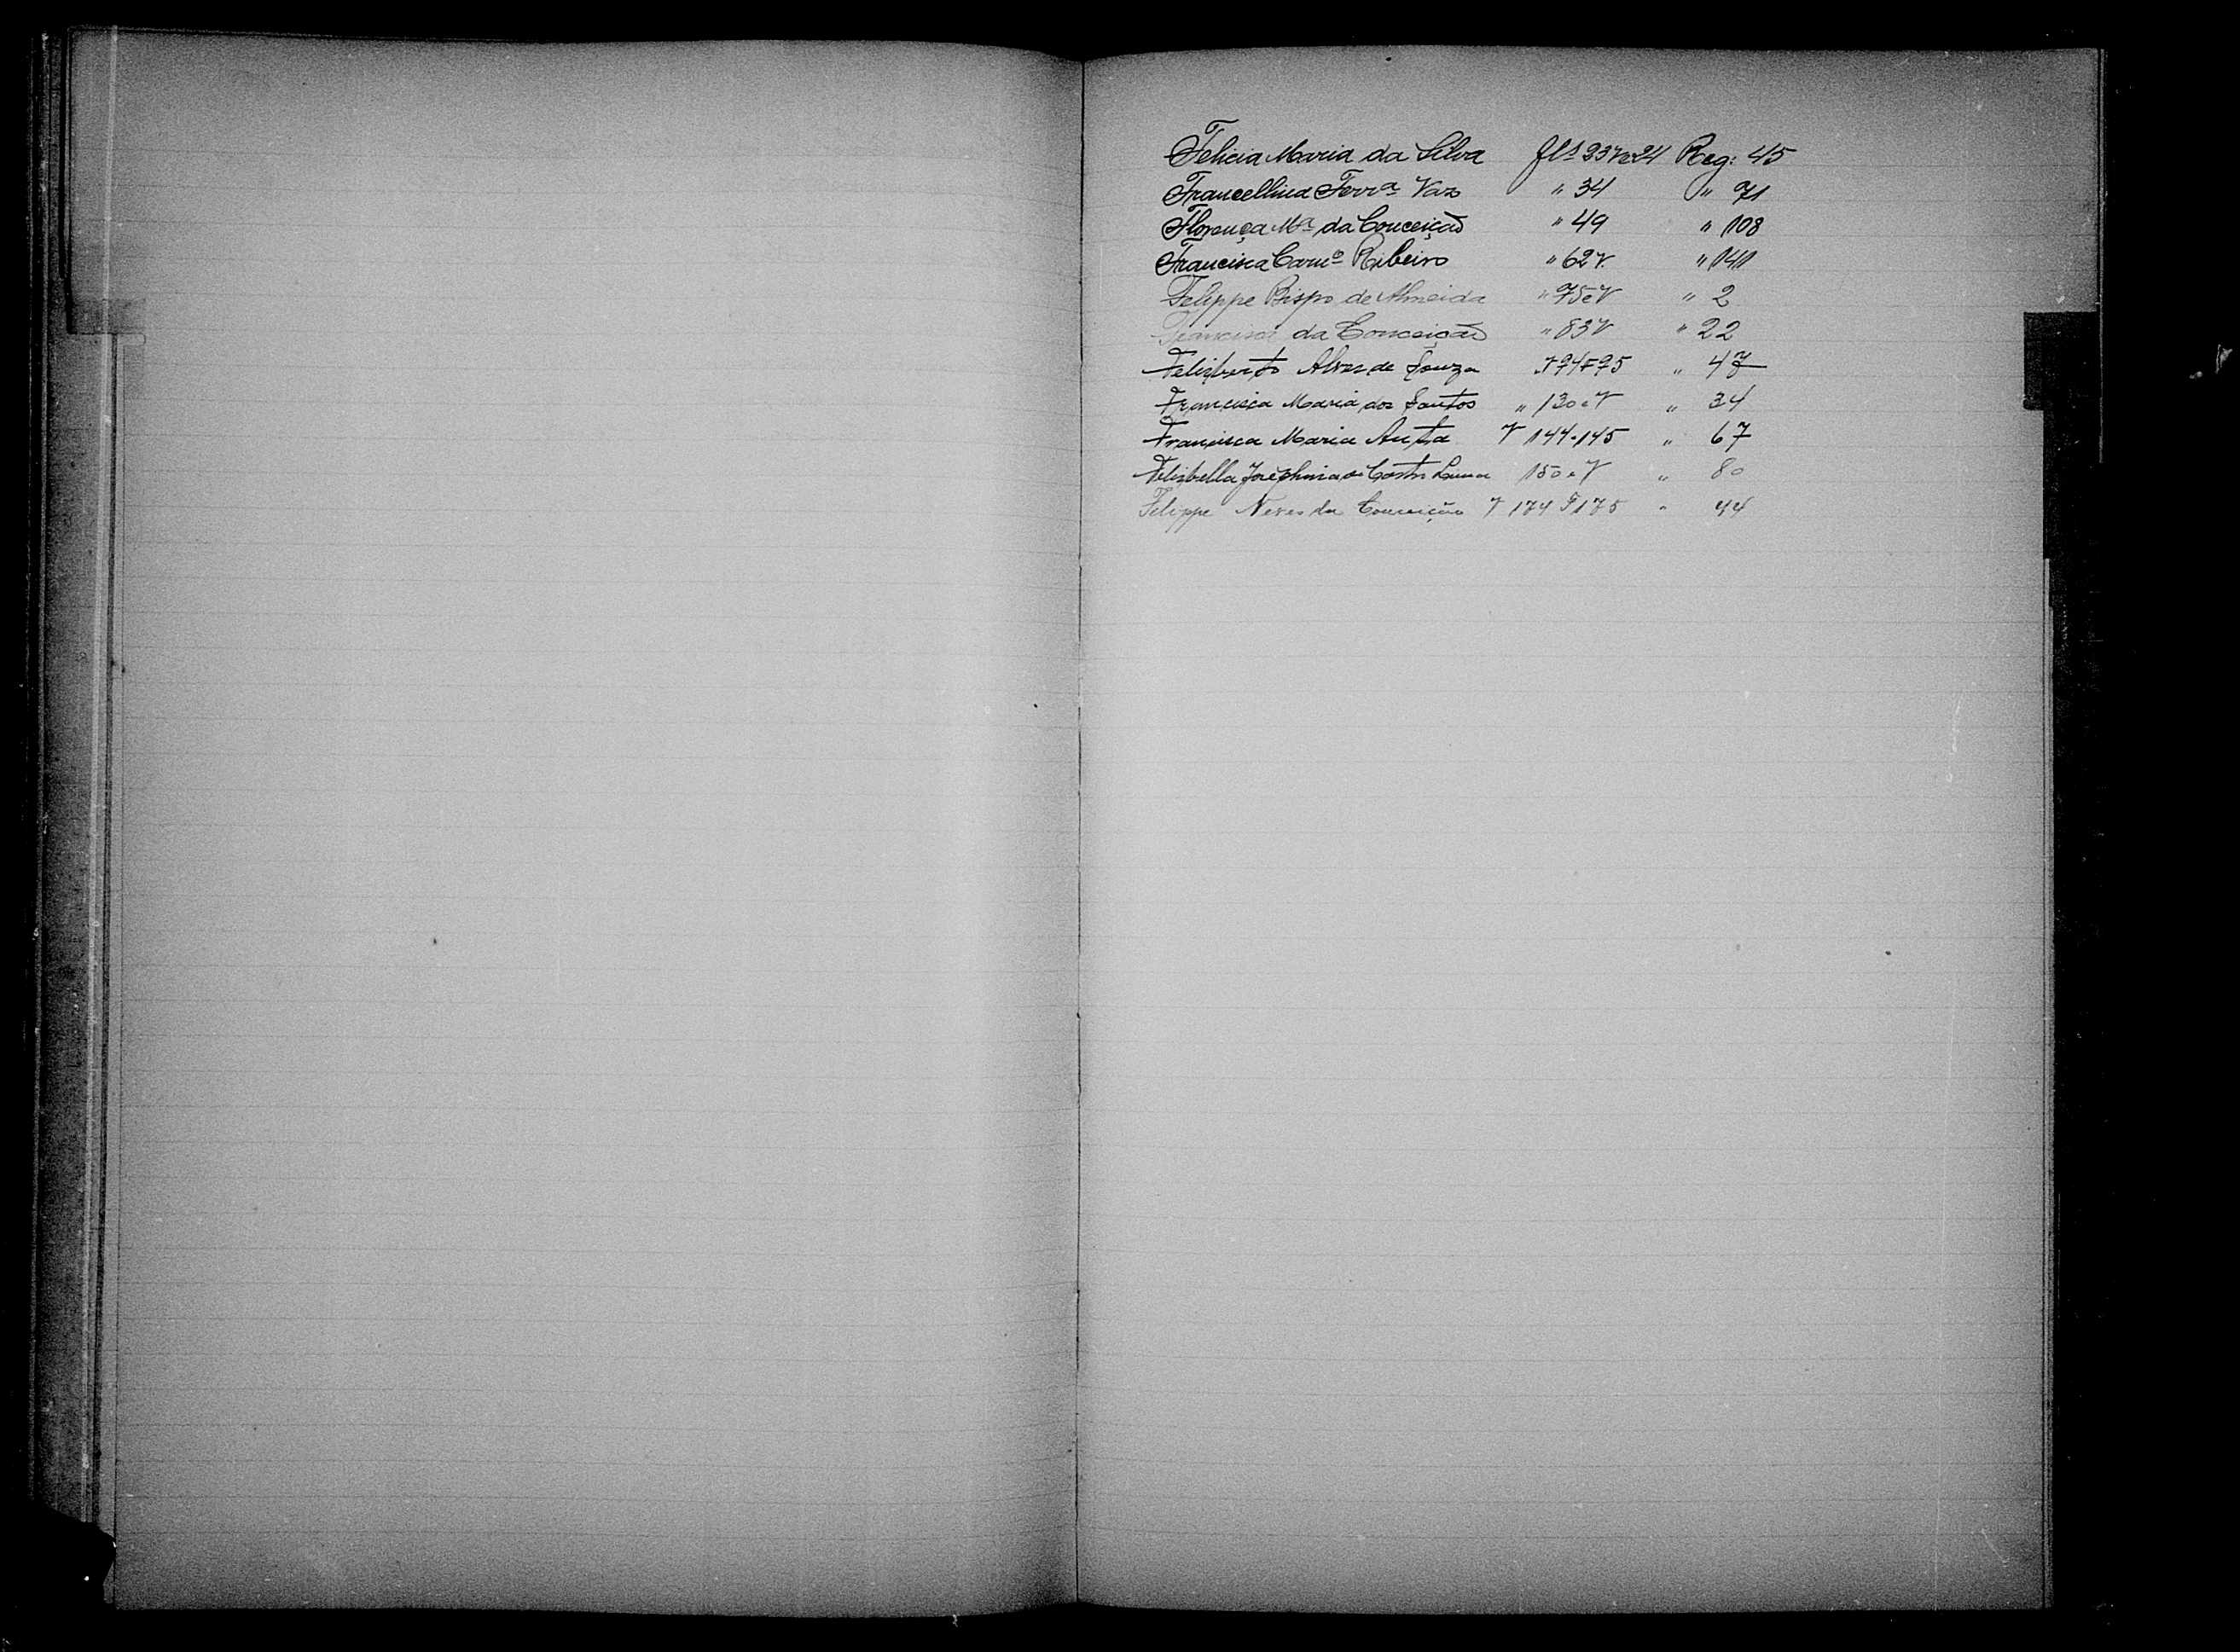 Felicia Maria da Silva fls 23v e 24 Reg: 45
Francellina Ferrª Vaz " 34 " 71
Florença Mª da Conceição " 49 " 108
Francisca Carnº Ribeiro " 62v. " 141
Felippe Bispo de Almeida " 75 e V " 2
Francisca da Conceição " 83V " 22
Felisberto Alves de Souza V 94 F 95 " 47
Francisca Maria dos Santos " 130 e V " 34
Francisca Maria Anta V 144-145 " 67
Felisbella Josephina de Castro Lima 150 e V " 80
Felippe Neres da Conceição V 174 F 175 " 44